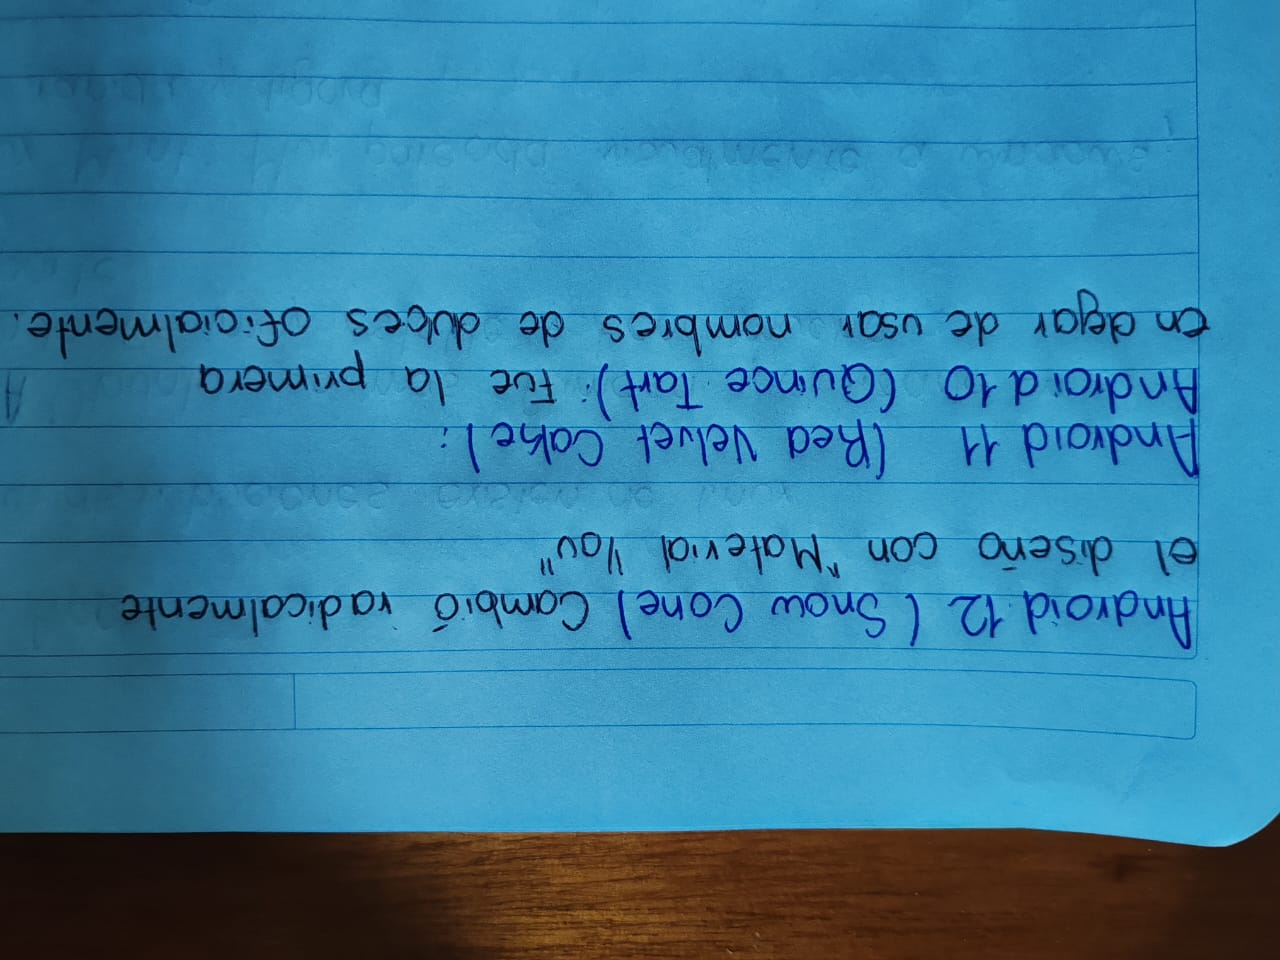 Android 12 (Snow Cone) Cambió radicalmente
el diseño con "Material You"
Android 11 (Red Velvet Cake):
Android 10 (Quince Tart): Fue la primera
en degar de usar nombres de dulces oficialmente.